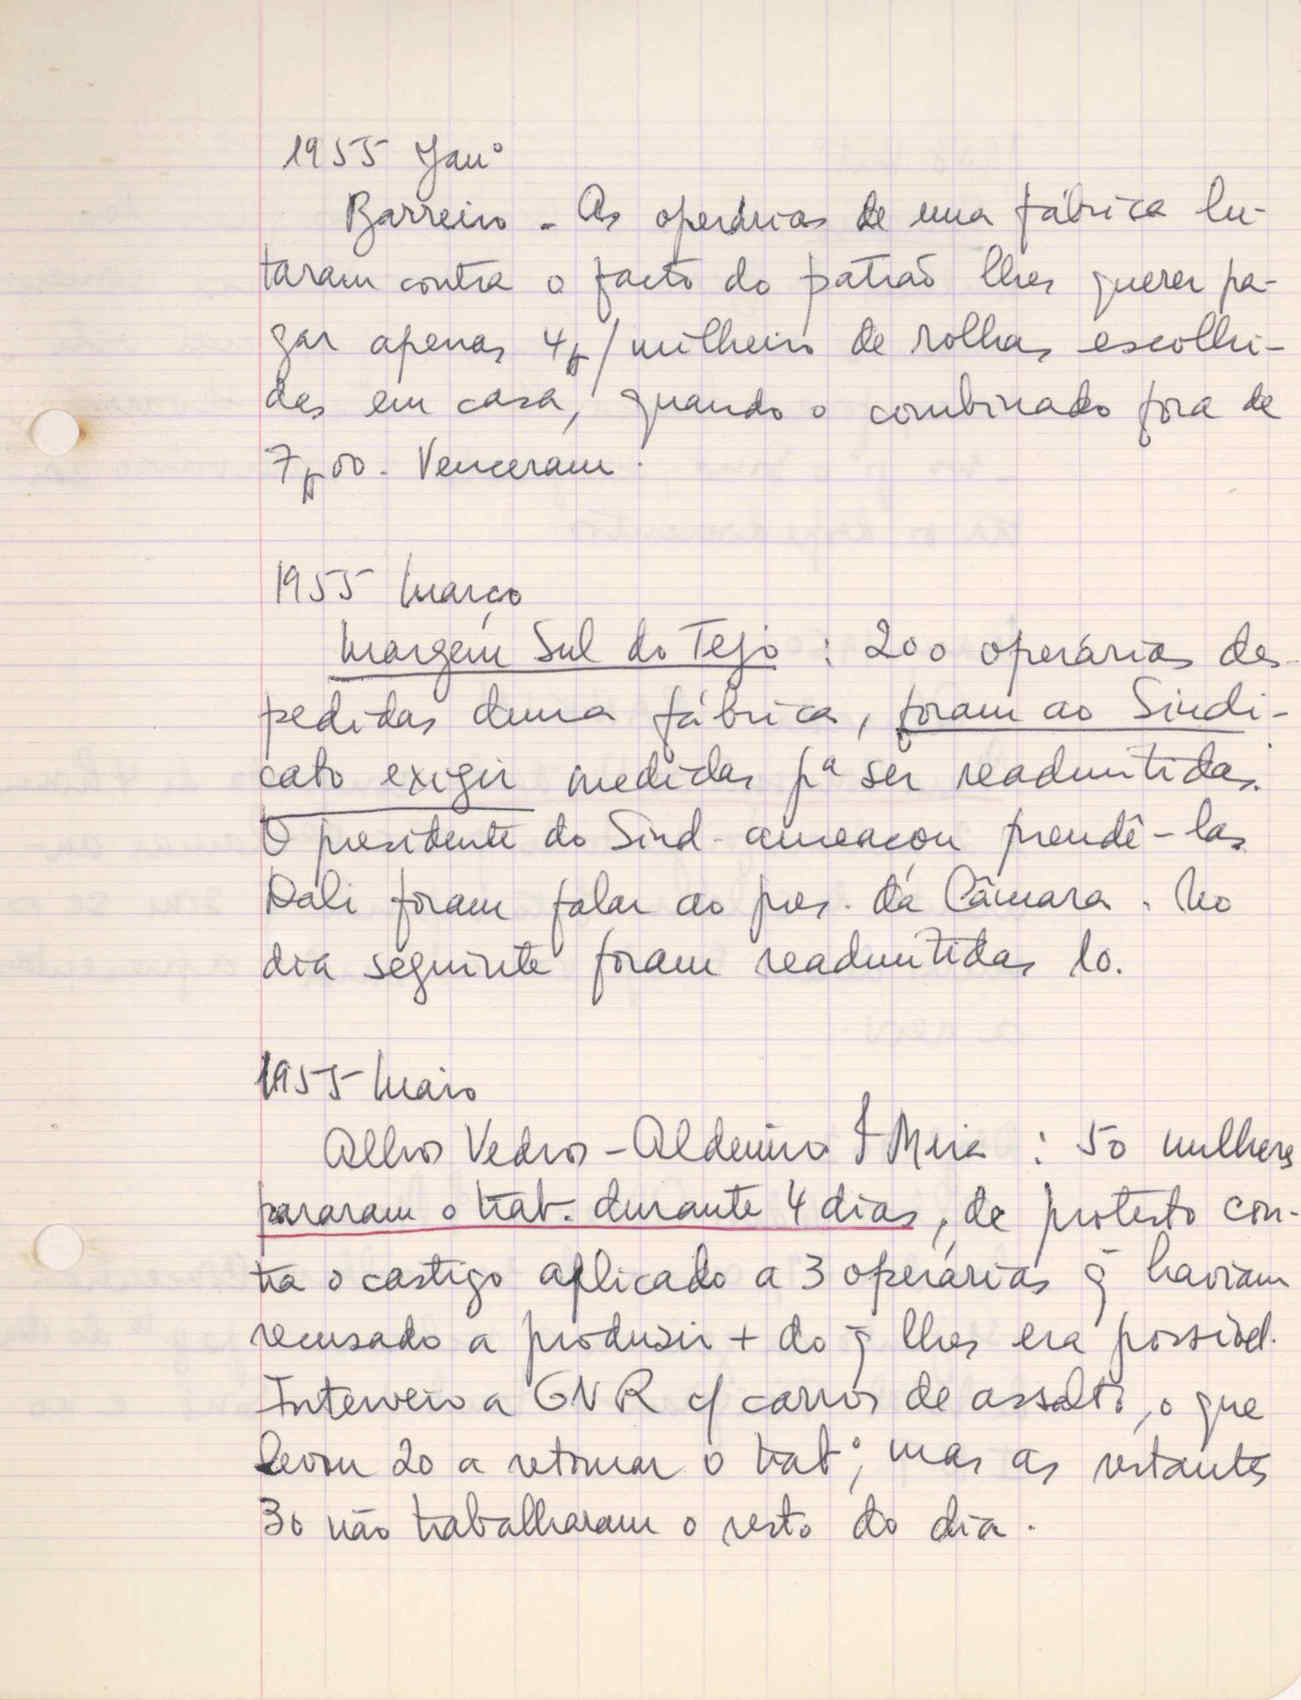 1955 Janº
Barreiro - As operárias de uma fábrica lu-
taram contra o facto do patrão lhes querer pa-
gar apenas 4$/milheiro de rolhas escolhi-
das em casa, quando o combinado fora de
7$00. Venceram.
1955 Março
Margem Sul do Tejo : 200 operárias des-
pedidas duma fábrica, foram ao Sindi-
cato exigir medidas pª ser readmitidas.
O presidente do Sind. ameaçou prendê-las
Dali foram falar ao pres. da Câmara. No
dia seguinte foram readmitidas 10.
1955 Maio
Alhos Vedros - Aldemiro : 50 mulheres
pararam o trab. durante 4 dias, de protesto con-
tra o castigo aplicado a 3 operárias q̃ haviam
recusado a produzir + do q̃ lhes era possível.
Interveio a GNR c/ carros de assalto, o que
levou 20 a retomar o trabº, mas as restantes
30 não trabalharam o resto do dia.